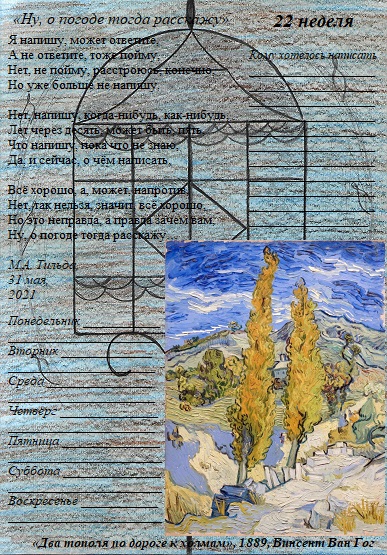 «Ну, о погоде тогда расскажу»
22 неделя
Я напишу, может ответите,
А не ответите, тоже пойму,
Нет, не пойму, расстроюсь, конечно,
Но уже больше не напишу.
Кому хотелось написать
Нет, напишу, когда-нибудь, как-нибудь,
Лет через десять, может быть, пять,
Что напишу, пока что не знаю,
Да, и сейчас, о чём написать,
Всё хорошо, а, может, напротив,
Нет, так нельзя, значит, всё хорошо,
Но это неправда, а правда зачем вам,
Ну, о погоде тогда расскажу...
М.А. Тильда
31 мая,
2021
Понедельник
Вторник
Среда
Четверг
Пятница
Суббота
Воскресенье
«Два тополя по дороге к холмам», 1889, Винсент Ван Гог